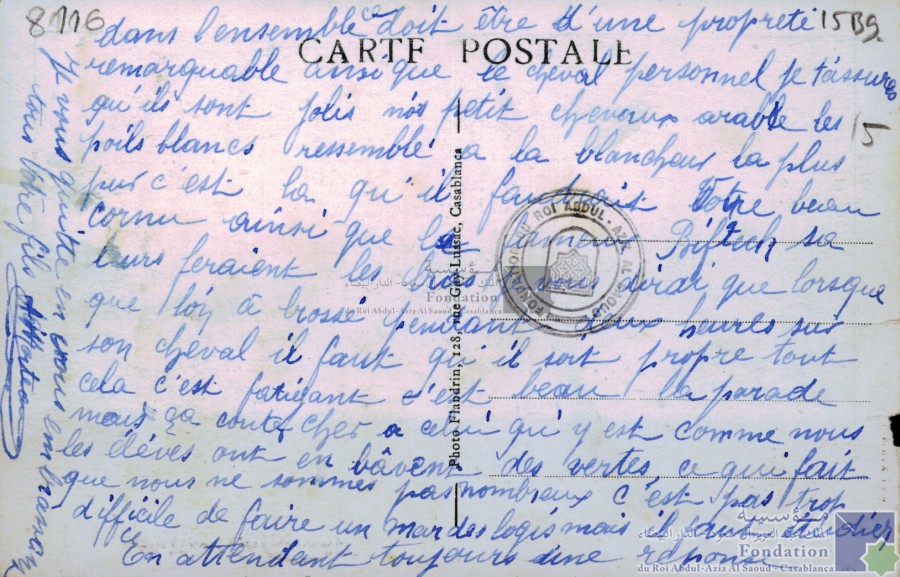 8116
15B9.
15
dans l'ensemble ce doit être d'une propreté
CARTE POSTALE
remarquable ainsi que le cheval personnel je t'assures
qu'ils sont jolis nos petit chevaux arabe les
poils blancs ressemblé a la blancheur la plus
pur c'est la qu'il faudrait Votre beau
cornu ainsi que le fameux Bifteck sa
leurs feraient les bras a vous dirai que lorsque
que l'on à brossé pendant deux heures sur
son cheval il faut qu'il soit propre tout
cela c'est fatigant c'est beau la parade
mais ça coute cher a celui qu'y est comme nous
les élèves ont en bâvent des vertes, ce qui fait
que nous ne sommes pas nombreux c'est pas trop
difficile de faire un mardes logis mais il faut étudier
En attendant toujours une reponse
je vous quitte en vous embrassant
tous votre fils
Photo Flandrin, 128, rue Gay-Lussac, Casablanca
FONDATION DU ROI ABDUL-AZIZ AL SAOUD
مؤسسة
الملك عبد العزيز آل سعود - الدار البيضاء
Fondation
du Roi Abdul-Aziz Al Saoud - Casablanca
مؤسسة
الملك عبد العزيز آل سعود - الدار البيضاء
Fondation
du Roi Abdul-Aziz Al Saoud - Casablanca